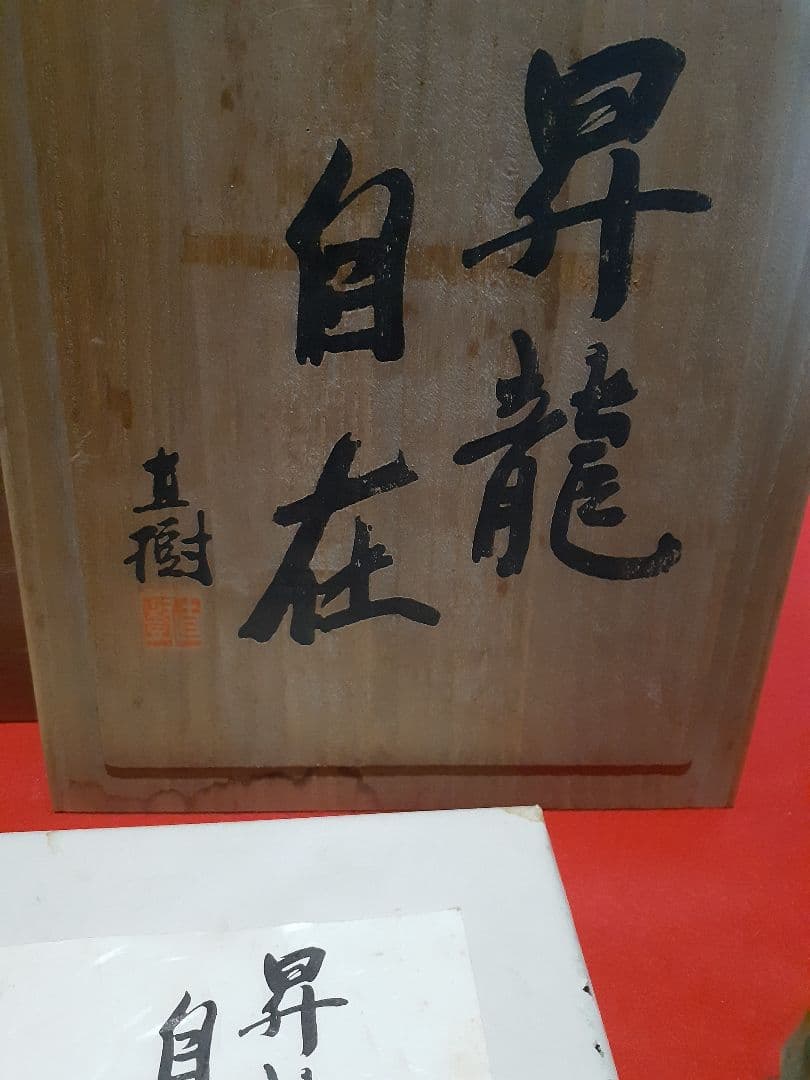 昇龍
自在
直樹
昇
自